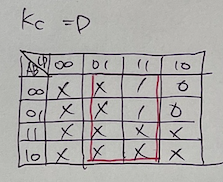 Kc = D
AB CD 00 01 11 10
00 X X 1 0
01 X X 1 0
11 X X X X
10 X X X X